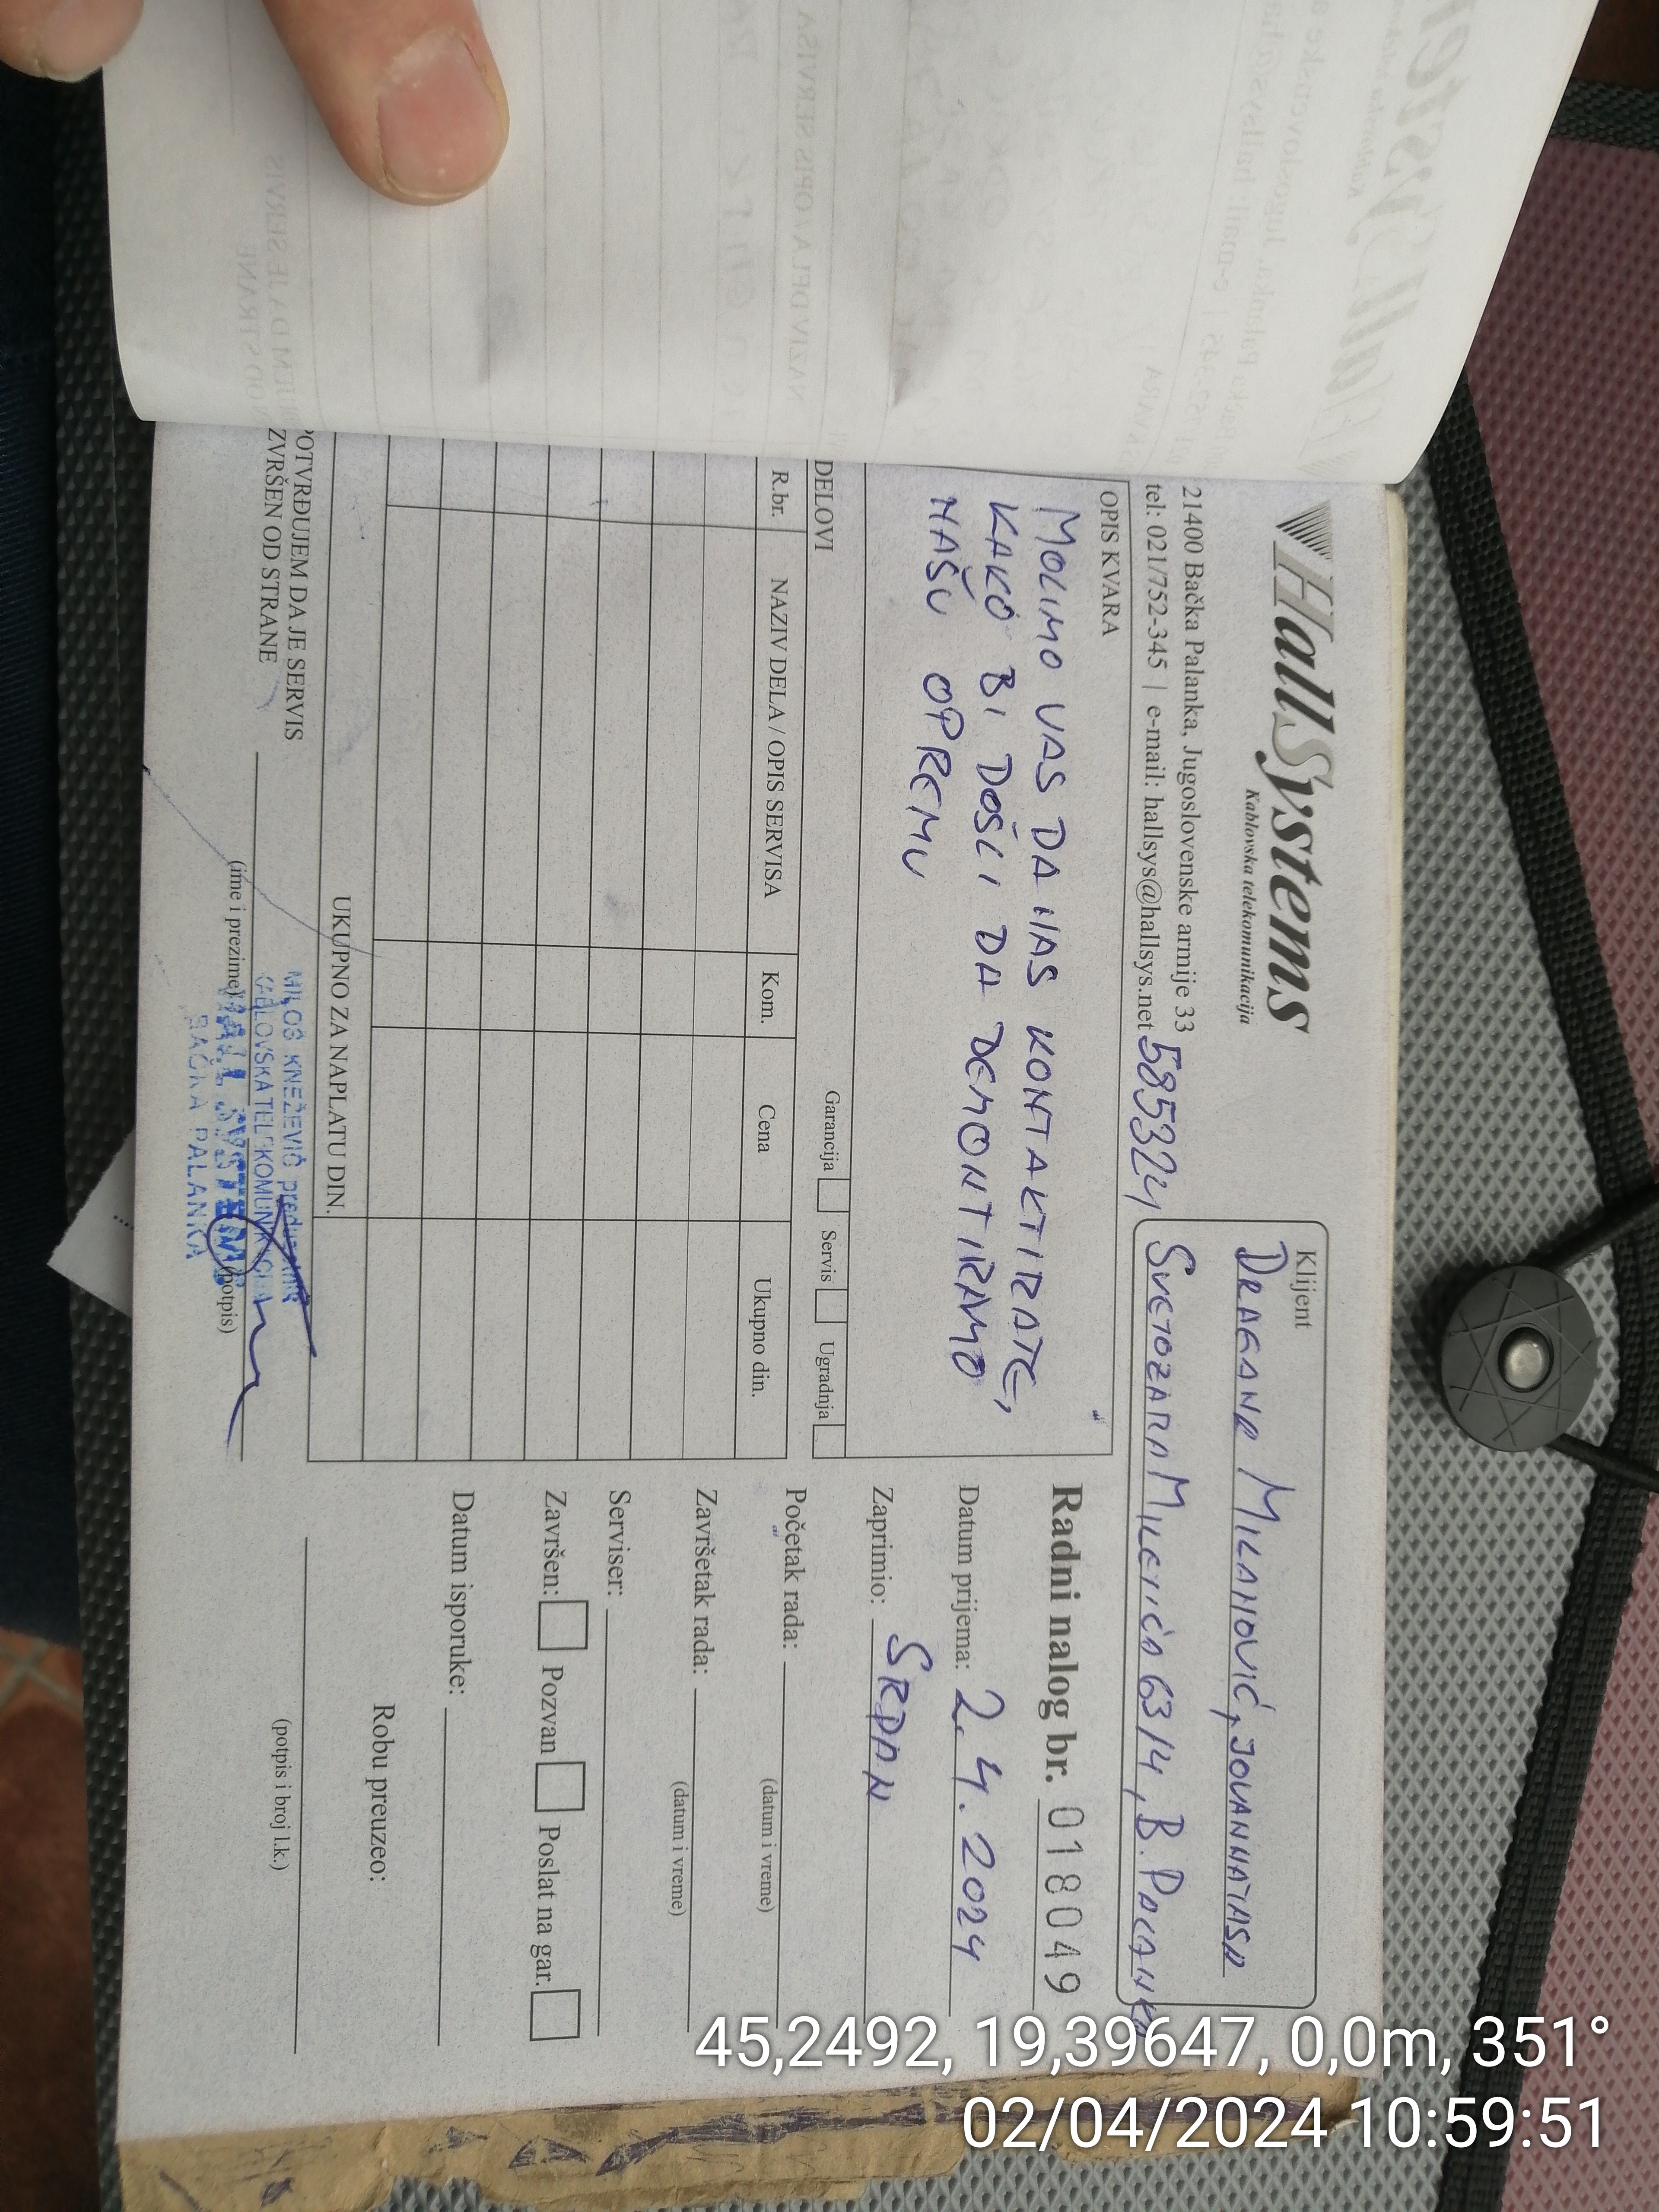 HallSystems
Kablovska telekomunikacija
21400 Bačka Palanka, Jugoslovenske armije 33
tel: 021/752-345 | e-mail: hallsys@hallsys.net
585324
Klijent
DRAGANA MILANOVIĆ, JOVANNATASA
SVETOZARA MILETIĆA 63/4, B. PALANKA
OPIS KVARA
MOLIMO VAS DA NAS KONTAKTIRATE,
KAKO BI DOŠLI DA DEMONTIRAMO
NAŠU OPREMU
Radni nalog br. 018049
Datum prijema: 2.4.2024
Zaprimio: SRDAN
Početak rada:
(datum i vreme)
Završetak rada:
(datum i vreme)
Serviser:
Završen: Pozvan Poslat na gar.
Datum isporuke:
Robu preuzeo:
(potpis i broj l.k.)
DELOVI Garancija Servis Ugradnja
R.br. NAZIV DELA / OPIS SERVISA Kom. Cena Ukupno din.
UKUPNO ZA NAPLATU DIN.
POTVRĐUJEM DA JE SERVIS
IZVRŠEN OD STRANE
(ime i prezime) (potpis)
MILOŠ KNEŽEVIĆ preduzetnik
KABLOVSKA TELEKOMUNIKACIJA
HALL SYSTEMS
BAČKA PALANKA
45,2492, 19,39647, 0,0m, 351°
02/04/2024 10:59:51